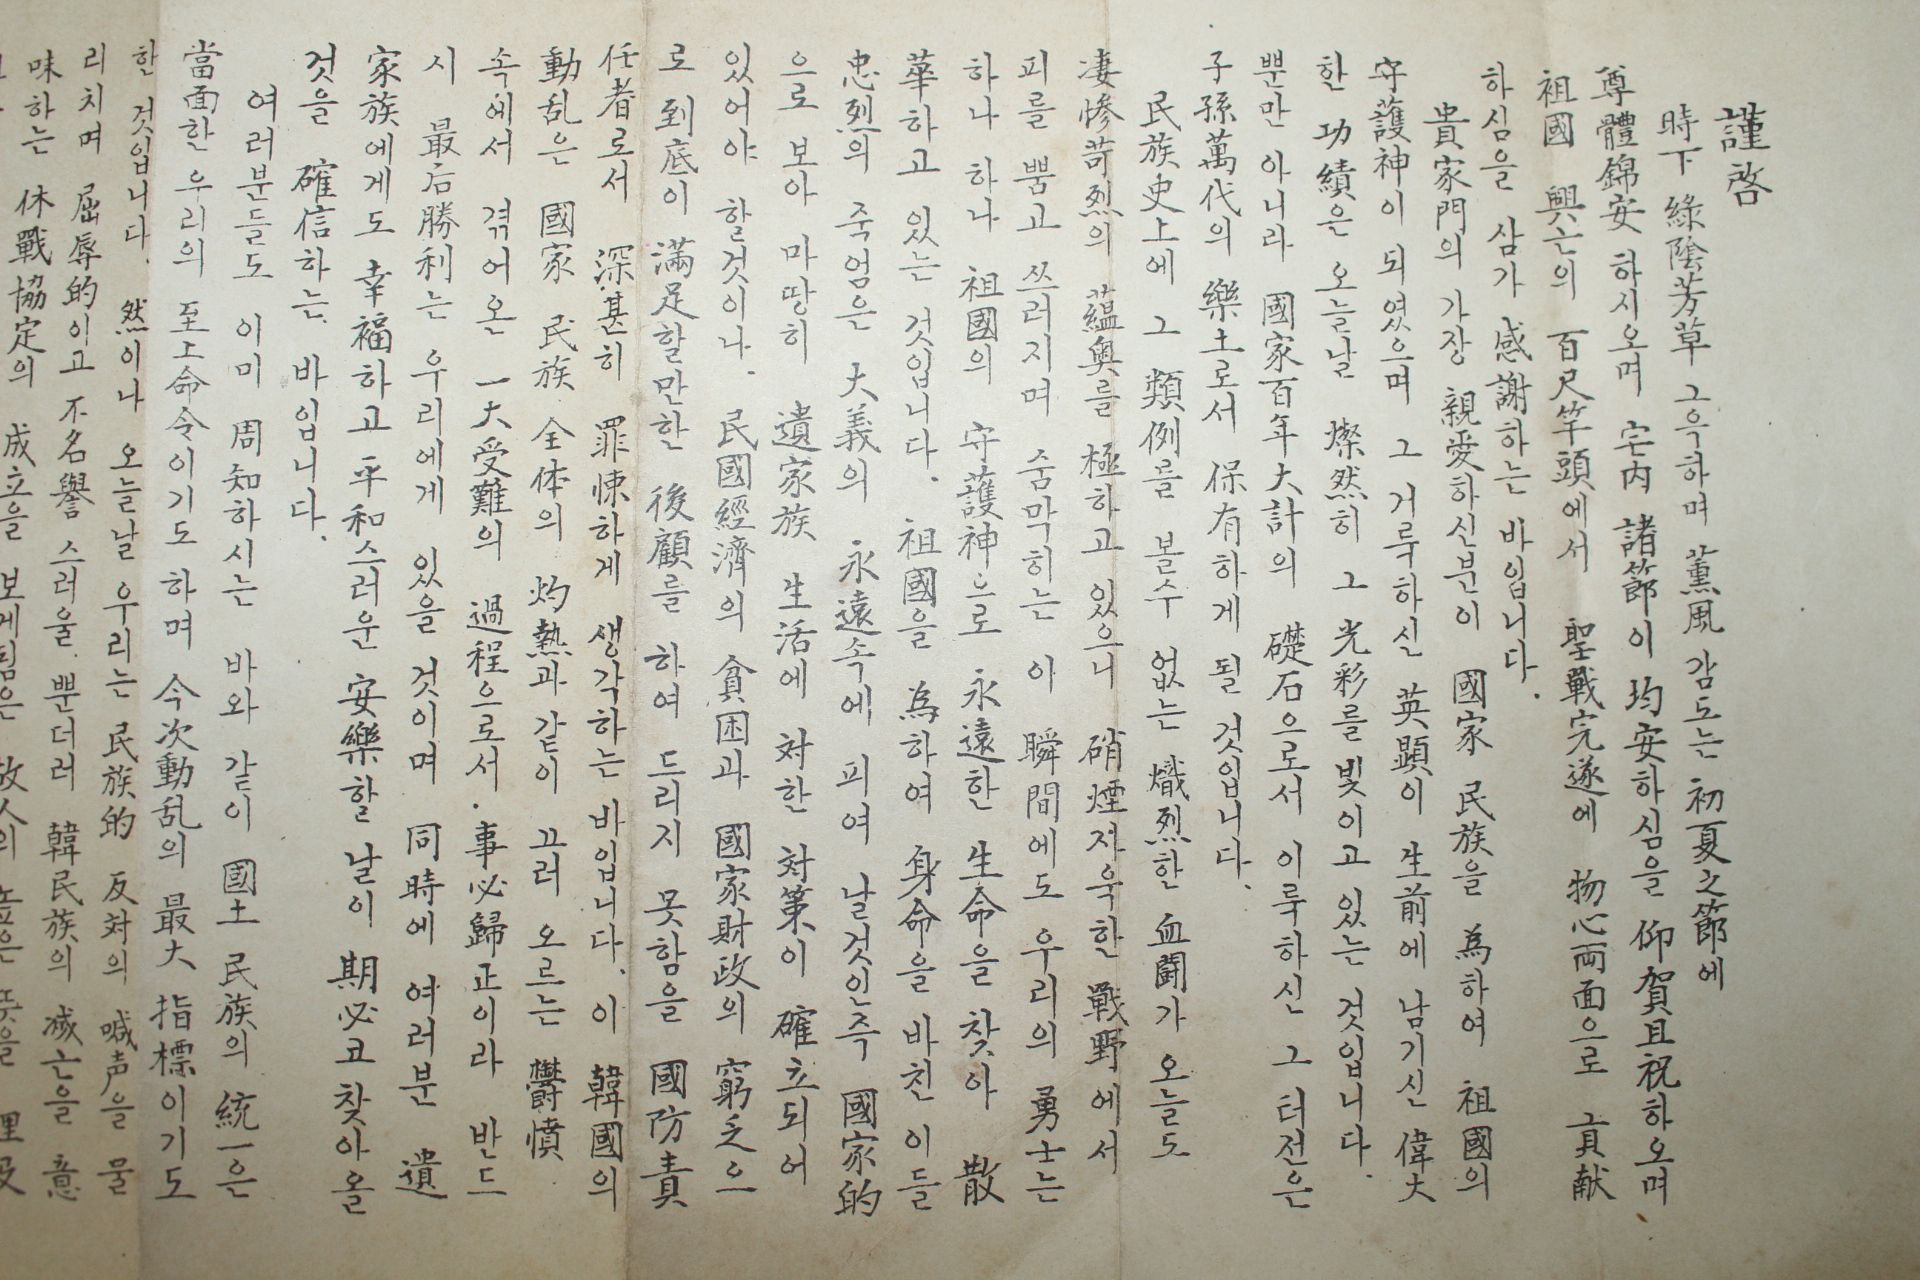 謹啓
時下 綠陰芳草 그윽하며 薰風 감도는 初夏之節에
尊體錦安 하시오며 宅内 諸節이 均安하심을 仰賀且祝하오며
祖國 興亡의 百尺竿頭에서 聖戰完遂에 物心両面으로 貢献
하심을 삼가 感謝하는 바입니다.
貴家門의 가장 親愛하신분이 國家 民族을 為하여 祖國의
守護神이 되였으며 그 거룩하신 英顕이 生前에 남기신 偉大
한 功績은 오늘날 燦然히 그 光彩를 빛이고 있는 것입니다.
뿐만 아니라 國家百年大計의 礎石으로서 이룩하신 그 터전은
子孫萬代의 樂土로서 保有하게 될 것입니다.
民族史上에 그 類例를 볼수 없는 熾烈한 血鬪가 오늘도
凄惨苛烈의 蘊奧를 極하고 있으니 硝煙자욱한 戰野에서
피를 뿜고 쓰러지며 숨막히는 이 瞬間에도 우리의 勇士는
하나 하나 祖國의 守護神으로 永遠한 生命을 찾아 散
華하고 있는 것입니다. 祖國을 為하여 身命을 바친 이들
忠烈의 죽엄은 大義의 永遠속에 피여 날것인즉 國家的
으로 보아 마땅히 遺家族 生活에 対한 対策이 確立되어
있어야 할것이나. 民國經濟의 貧困과 國家財政의 窮乏으
로 到底이 滿足할만한 後顧를 하여 드리지 못함을 國防責
任者로서 深甚히 罪悚하게 생각하는 바입니다. 이 韓國의
動乱은 國家 民族 全体의 灼熱과 같이 끄러 오르는 欝憤
속에서 겪어온 一大受難의 過程으로서. 事必歸正이라 반드
시 最后勝利는 우리에게 있을 것이며 同時에 여러분 遺
家族에게도 幸福하고 平和스러운 安樂할 날이 期必코 찾아올
것을 確信하는 바입니다.
여러분들도 이미 周知하시는 바와 같이 國土 民族의 統一은
當面한 우리의 至上命令이기도 하며 今次動乱의 最大 指標이기도
한 것입니다. 然이나 오늘날 우리는 民族的 反対의 喊声을 물
리치며 屈辱的이고 不名譽 스러울 뿐더러 韓民族의 减亡을 意
味하는 休戰協定의 成立을 보게됨은